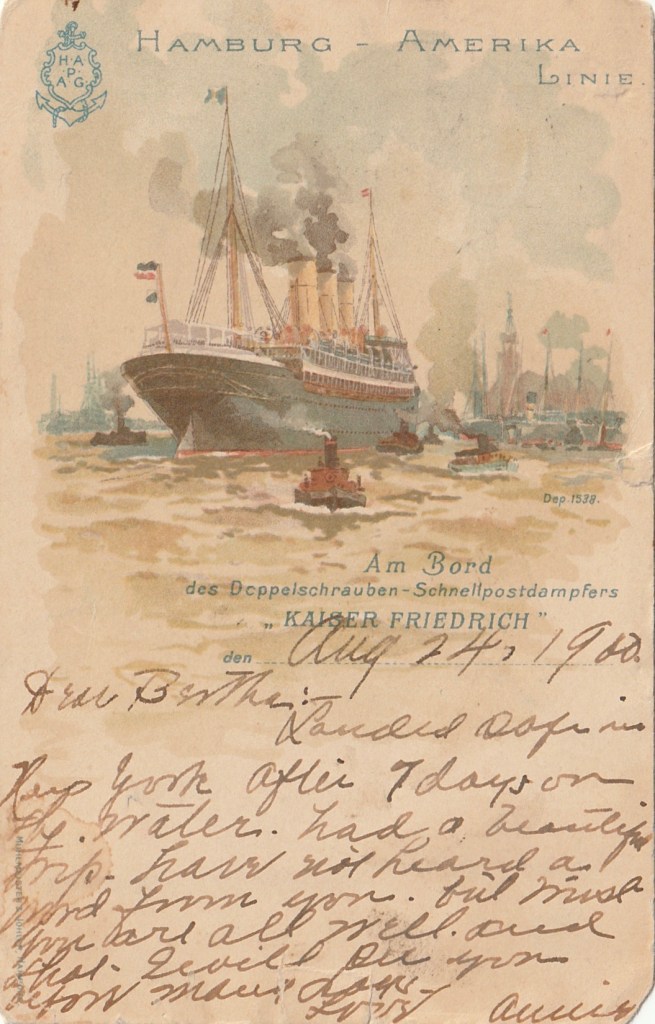 HAMBURG - AMERIKA
LINIE.
H.A.
P.
A G.
Dep. 1538.
Am Bord
des Doppelschrauben-Schnellpostdampfers
„KAISER FRIEDRICH"
den Aug 24, 1900.
Dear Bertha:
Landed safe in
New York after 7 days on
the Water. had a beautiful
trip. have not heard a
word from you. but must
you are all well. and
that I will see you
before many days.
Love Annie